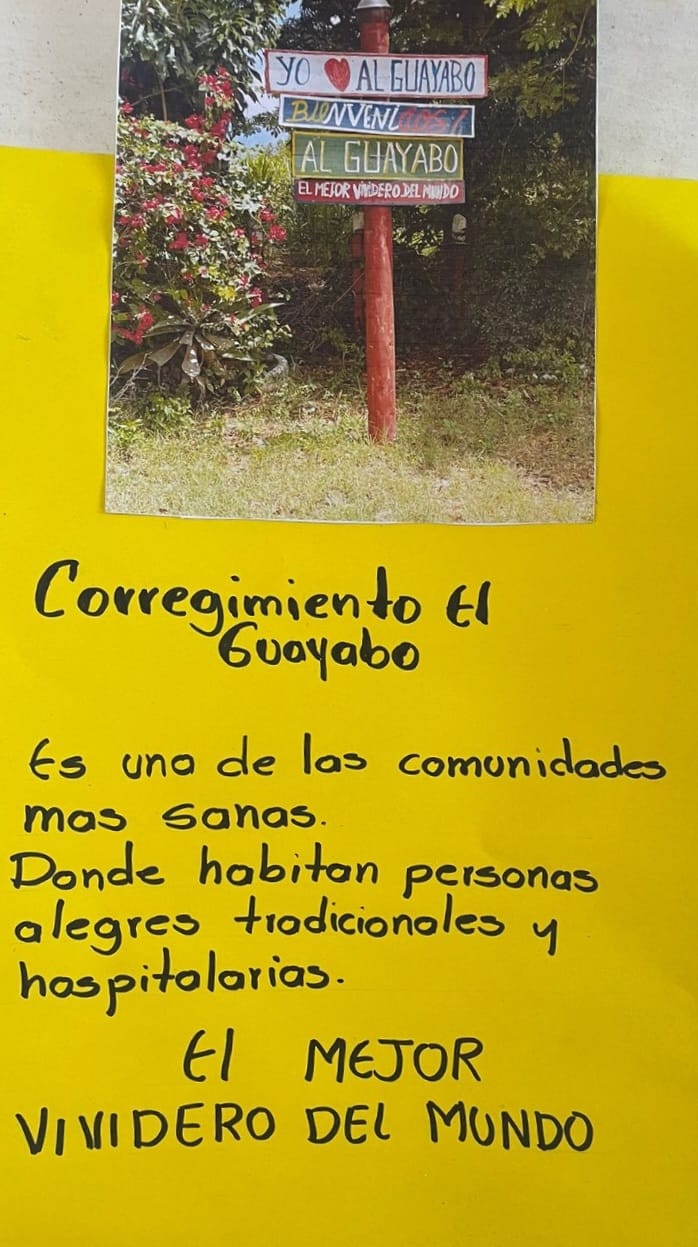 YO ❤ AL GUAYABO
BIENVENIDOS!
AL GUAYABO
EL MEJOR VIVIDERO DEL MUNDO
Corregimiento El
Guayabo
Es una de las comunidades
mas sanas.
Donde habitan personas
alegres tradicionales y
hospitalarias.
El MEJOR
VIVIDERO DEL MUNDO